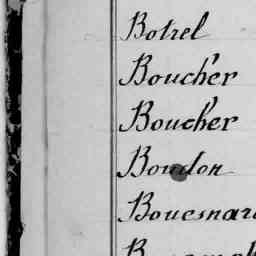 Botrel
Boucher
Boucher
Boudon
Bouesnard